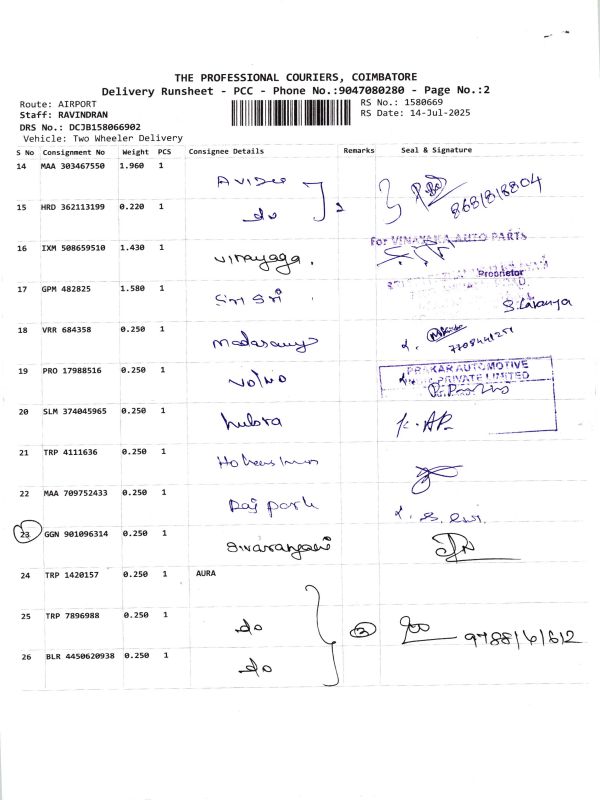 THE PROFESSIONAL COURIERS, COIMBATORE
Delivery Runsheet - PCC - Phone No.:9047080280 - Page No.:2
Route: AIRPORT
Staff: RAVINDRAN
DRS No.: DCJB158066902
Vehicle: Two Wheeler Delivery
RS No.: 1580669
RS Date: 14-Jul-2025
S No Consignment No Weight PCS Consignee Details Remarks Seal & Signature
14 MAA 303467550 1.960 1
8681818804
15 HRD 362113199 0.220 1 do 2
For VINAYAKA AUTO PARTS
16 IXM 508659510 1.430 1 vinayaga.
Proprietor
17 GPM 482825 1.580 1 Siri Sri S. Lavanya
18 VRR 684358 0.250 1 Madasamy
19 PRO 17988516 0.250 1 Volvo
PRAKAR AUTOMOTIVE
PRIVATE LIMITED
20 SLM 374045965 0.250 1
21 TRP 4111636 0.250 1
22 MAA 709752433 0.250 1 Raj park
23 GGN 901096314 0.250 1
24 TRP 1420157 0.250 1 AURA
25 TRP 7896988 0.250 1 do 3
9788161612
26 BLR 4450620938 0.250 1 do